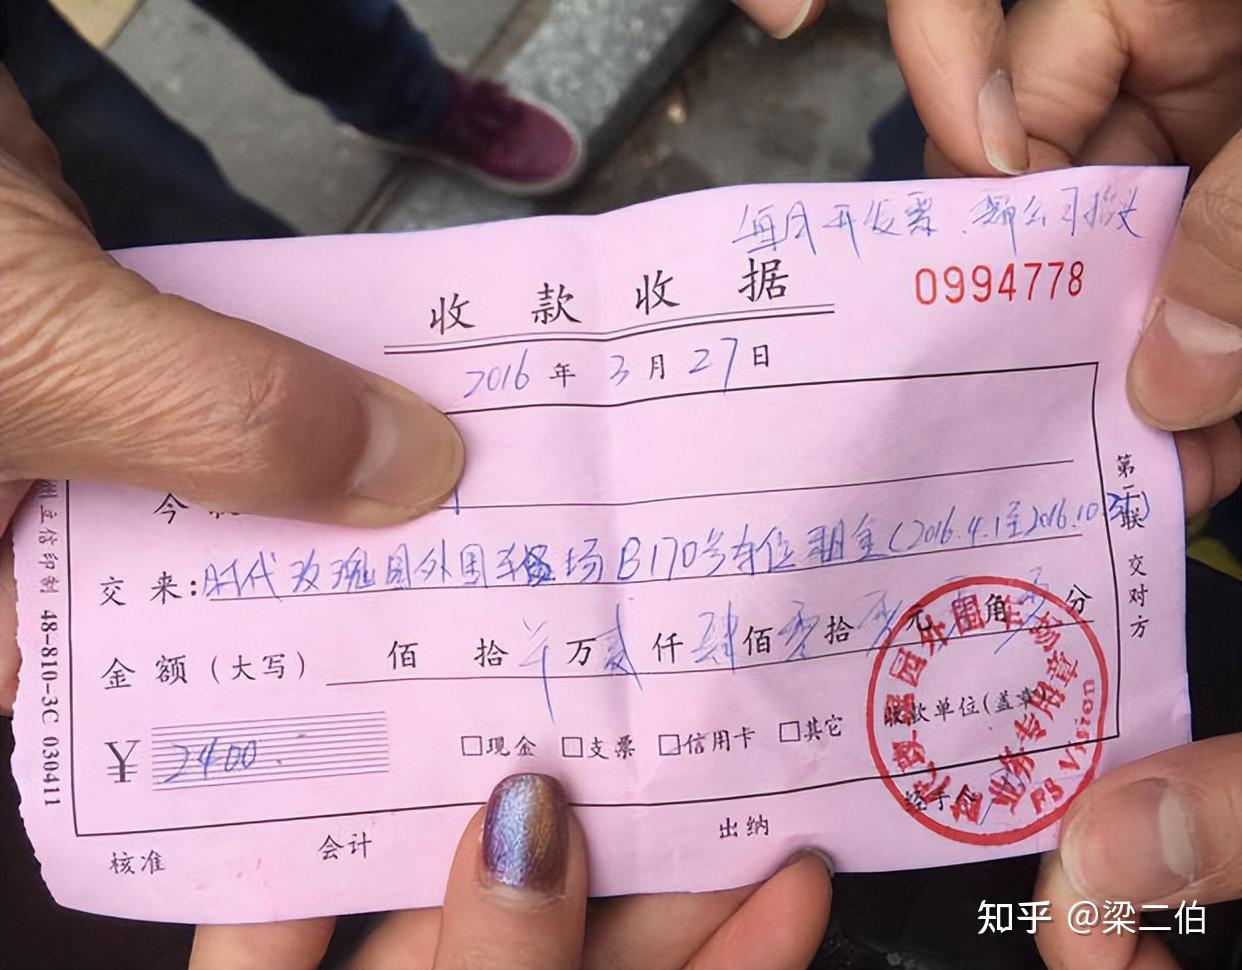 每月开发票
公司抬头
收款收据
0994778
2016年3月27日
今
交来:时代玫瑰园外围车场B170号车位租金(2016.4.1至2016.10.31)
金额(大写) 佰 拾 万贰仟肆佰零拾零元零角零分
¥2400.
□现金 □支票 □信用卡 □其它 收款单位(盖章)
经手
核准 会计 出纳
第一联 交对方
州立信印制 48-810-3C 030411
玫瑰园外围车场
业务专用章
Pg Vision
知乎 @梁二伯